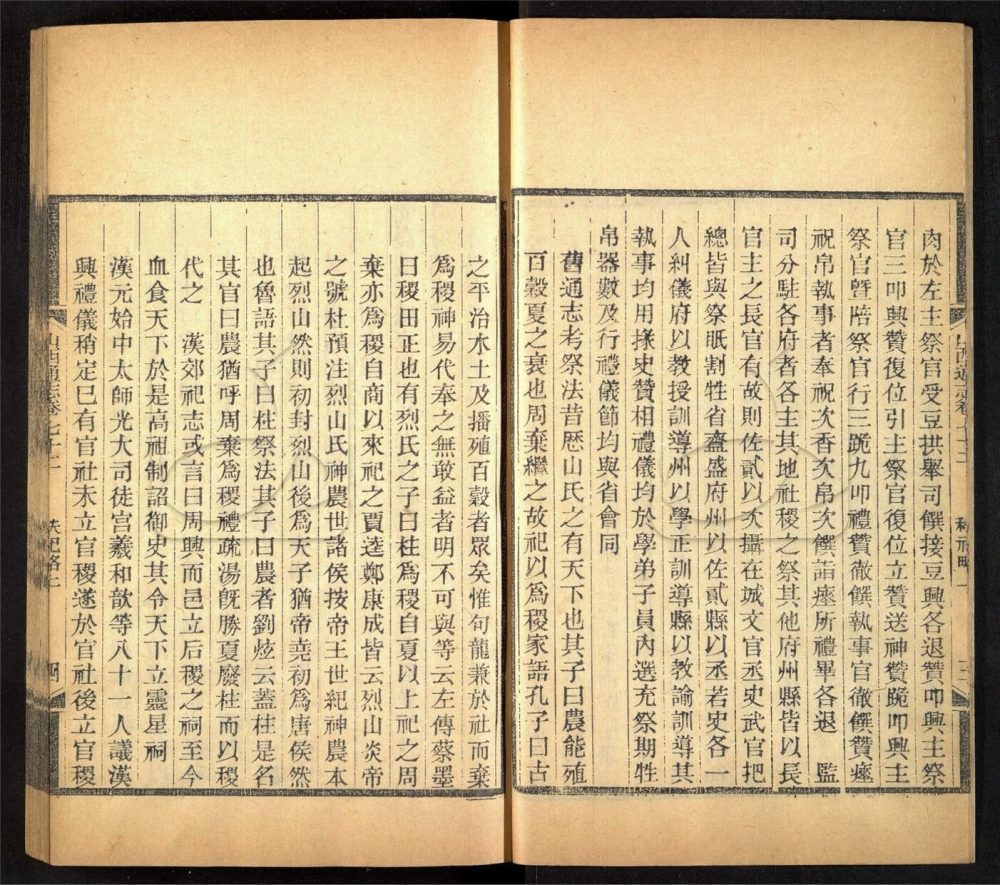 肉於左主祭官受豆拱舉司饌接豆興各退贊叩興主祭
官三叩興贊復位引主祭官復位立贊送神贊跪叩興主
祭官暨陪祭官行三跪九叩禮贊徹饌執事官徹饌贊瘞
祝帛執事者奉祝次香次帛次饌詣瘞所禮畢各退 監
司分駐各府者各主其地社稷之祭其他府州縣皆以長
官主之長官有故則佐貳以次攝在城文官丞史武官把
總皆與祭眂割牲省齍盛府州以佐貳縣以丞若史各一
人糾儀府以教授訓導州以學正訓導縣以教諭訓導其
執事均用掾史贊相禮儀均於學弟子員內選充祭期牲
帛器數及行禮儀節均與省會同
舊通志考祭法昔厯山氏之有天下也其子曰農能殖
百穀夏之衰也周棄繼之故祀以為稷家語孔子曰古
山西通志卷七十二 秩祀略二 四
之平治水土及播殖百穀者眾矣惟句龍兼於社而棄
為稷神易代奉之無敢益者明不可與等云左傳蔡墨
曰稷田正也有烈氏之子曰柱為稷自夏以上祀之周
棄亦為稷自商以來祀之賈逵鄭康成皆云烈山炎帝
之號杜預注烈山氏神農世諸侯按帝王世紀神農本
起烈山然則初封烈山後為天子猶帝堯初為唐侯然
也魯語其子曰柱祭法其子曰農者劉炫云蓋柱是名
其官曰農猶呼周棄為稷禮疏湯旣勝夏廢柱而以稷
代之 漢郊祀志或言曰周興而邑立后稷之祠至今
血食天下於是高祖制詔御史其令天下立靈星祠
漢元始中太師光大司徒宮羲和歆等八十一人議漢
興禮儀稍定已有官社未立官稷遂於官社後立官稷